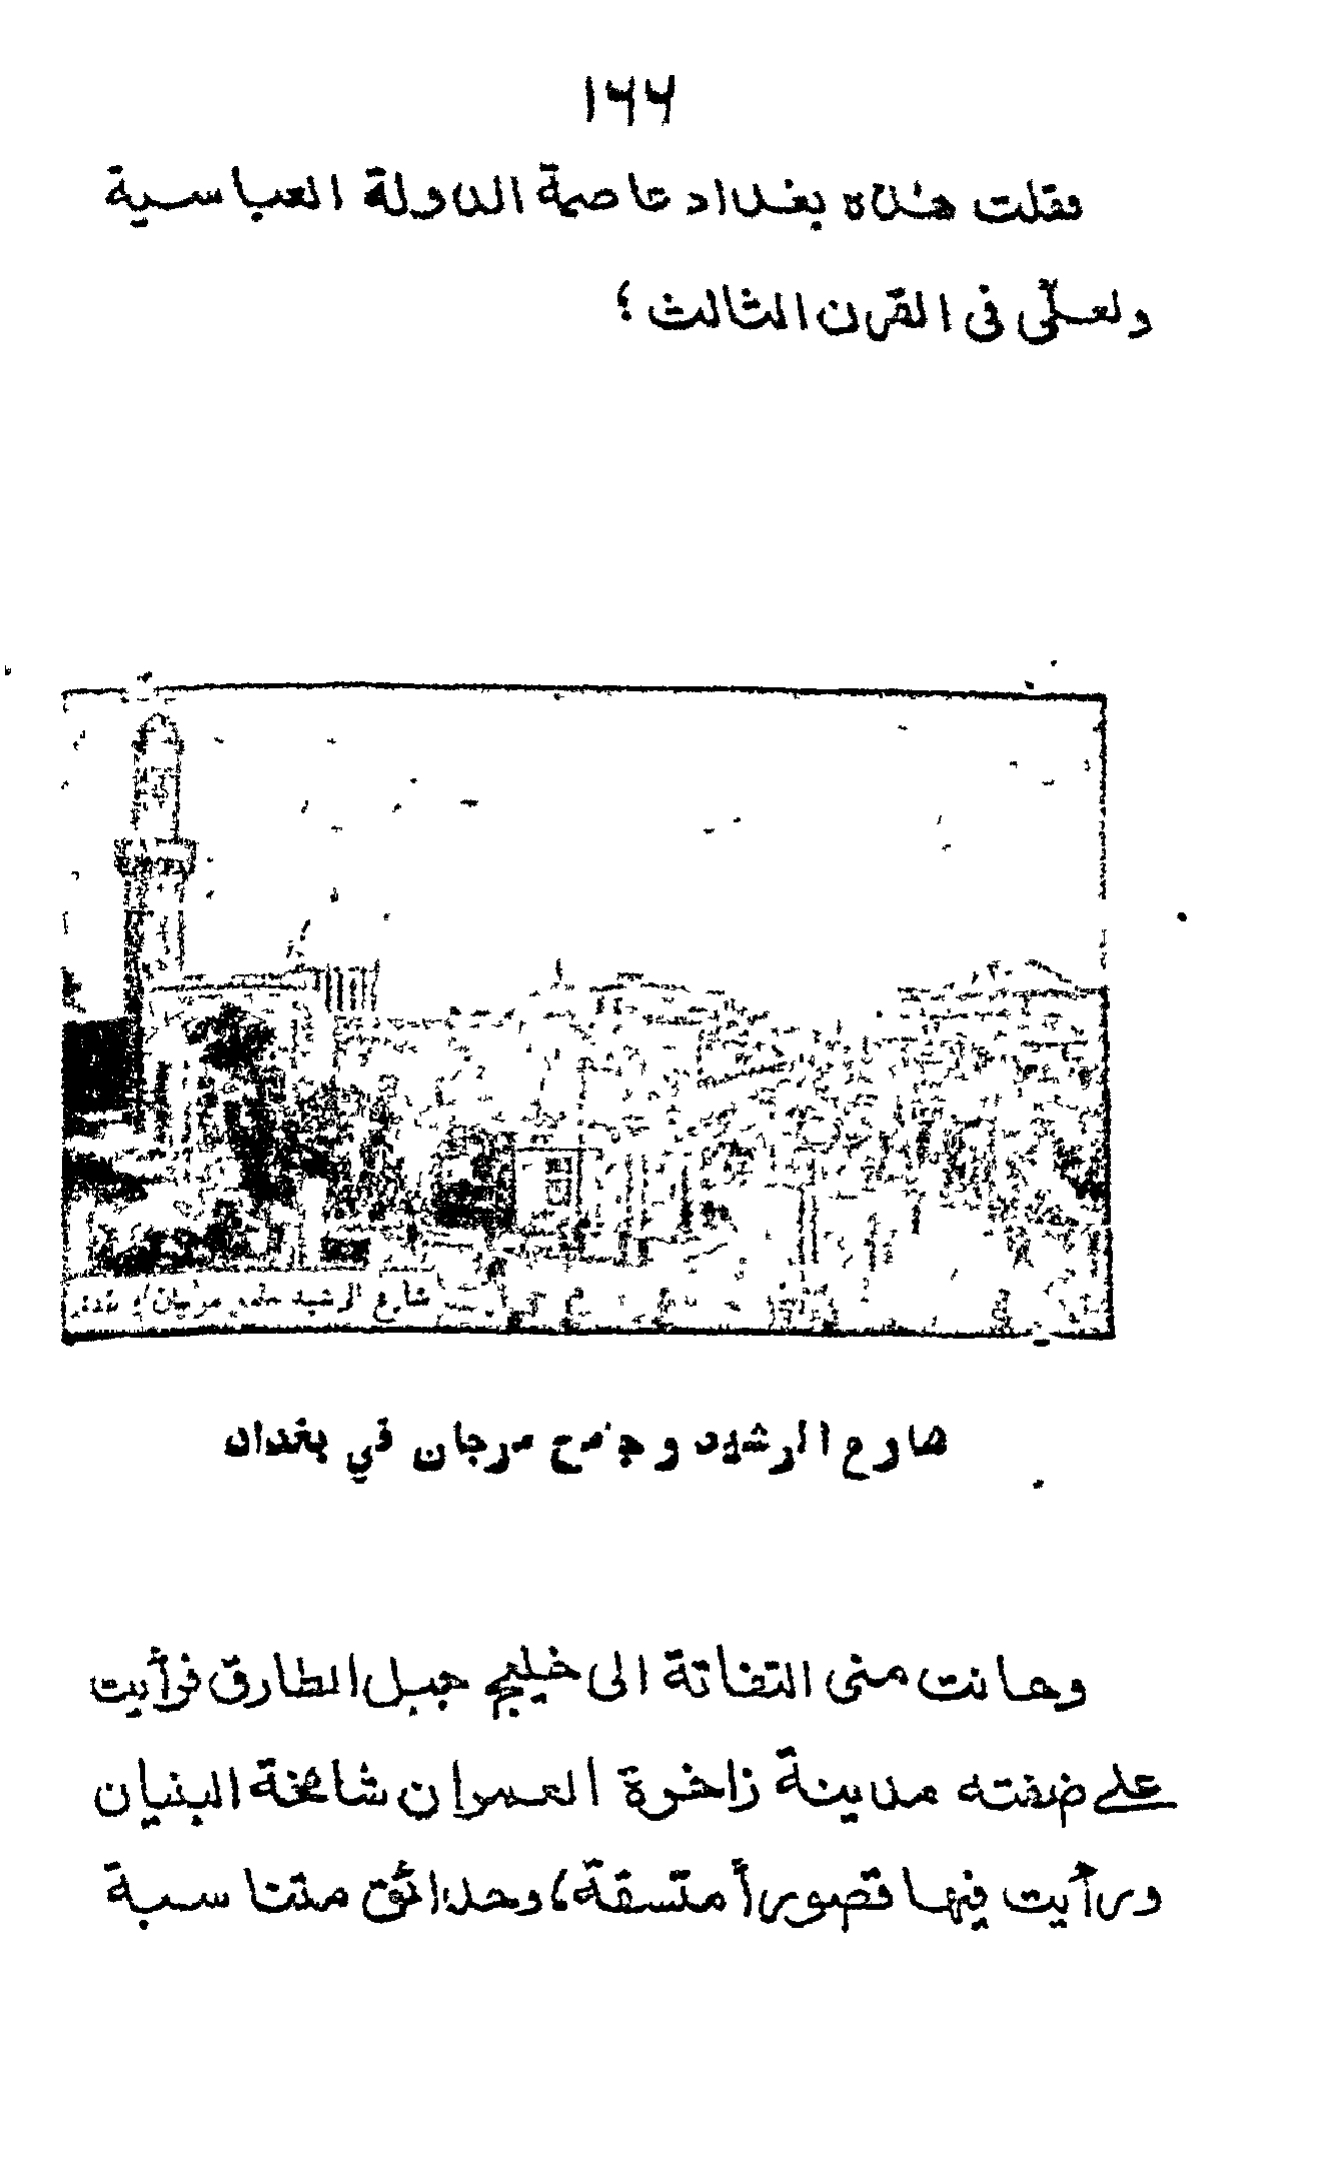 ۱۶۶
فقلت هذه بغداد عاصمة الدولة العباسية
ولعلّى فى القرن الثالث ؛
شارع الرشيد جامع مرجان
شارع الرشيد وجامع مرجان في بغداد
وحانت منى التفاتة الى خليج جبل الطارق فرأيت
على ضفته مدينة زاخرة العمران شامخة البنيان
ورأيت فيها قصوراً متسقة، وحدائق متناسبة